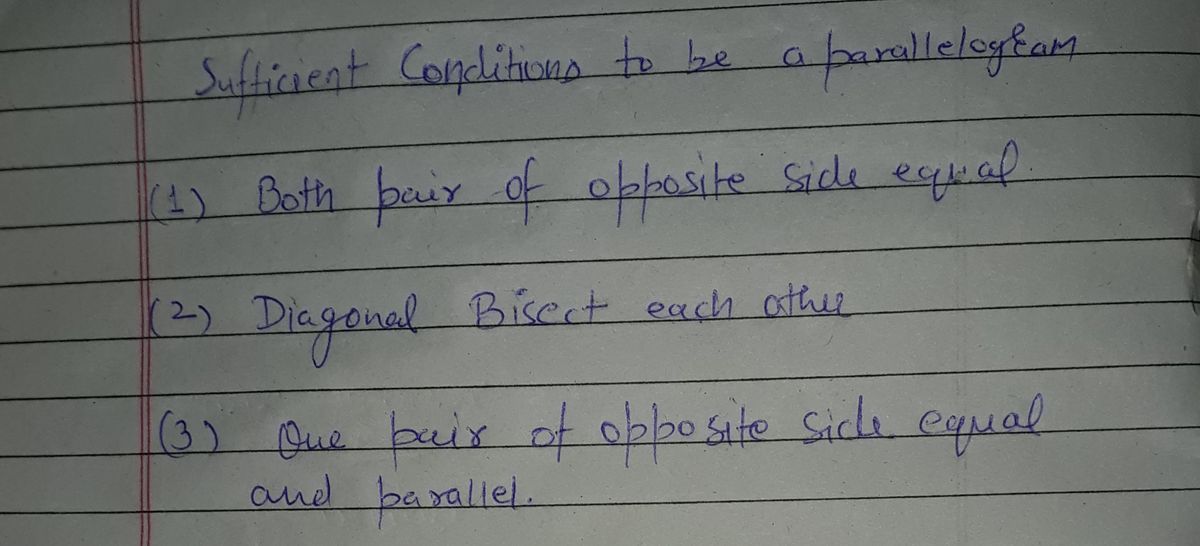 Sufficient Conditions to be a parallelogram
(1) Both pair of opposite side equal.
(2) Diagonal Bisect each other
(3) One pair of opposite side equal
and parallel.